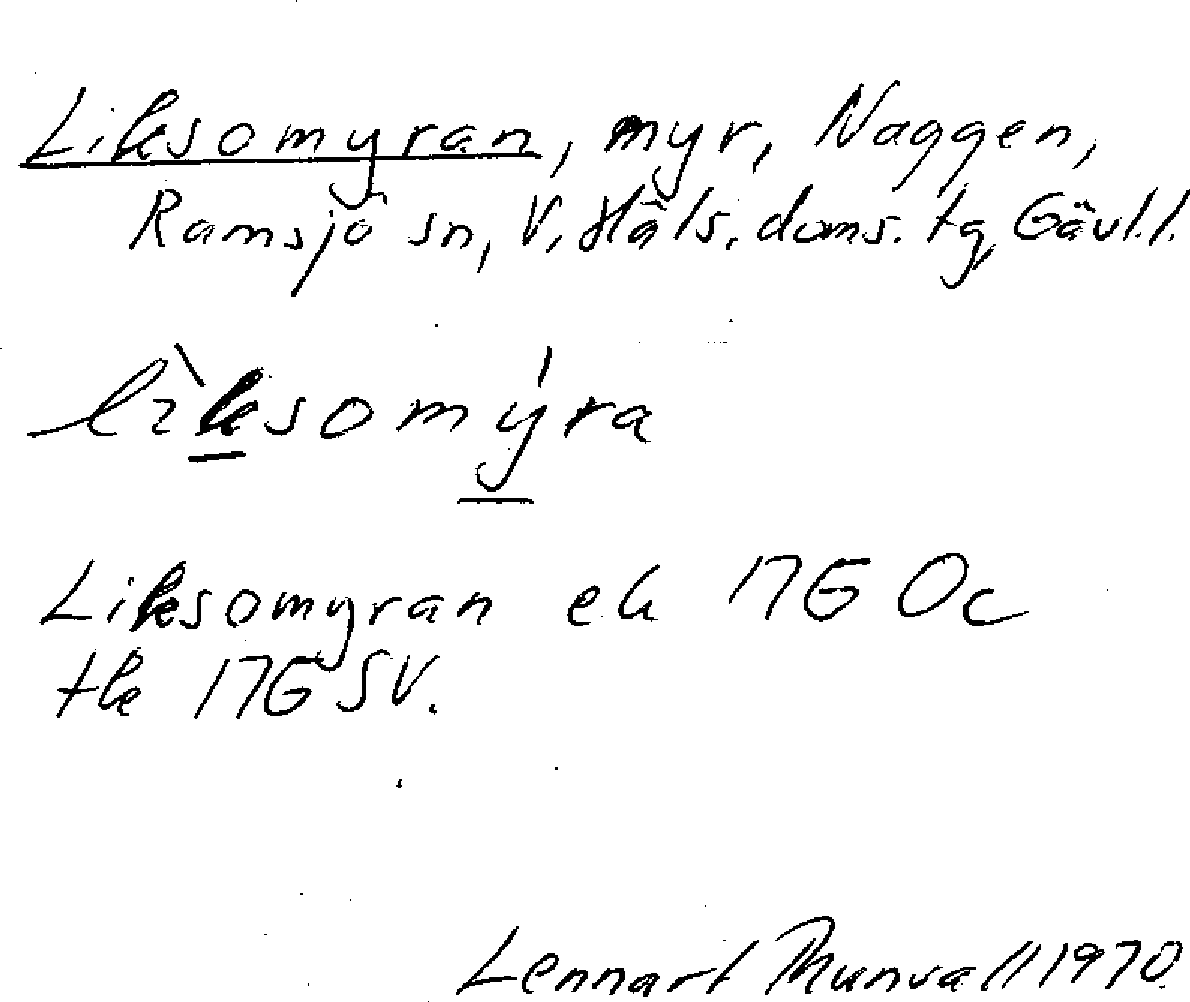 Liksomyran, myr, Naggen,
Ramsjö sn, V. Häls. doms. tg, Gävl.l.
lìksomýra
Liksomyran ek 17G Oc
tk 17G SV.
Lennart Thunvall 1970